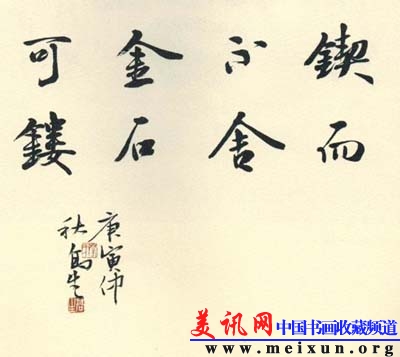 锲而
不舍
金石
可镂
庚寅仲
秋
美讯网 中国书画收藏频道
www.meixun.org